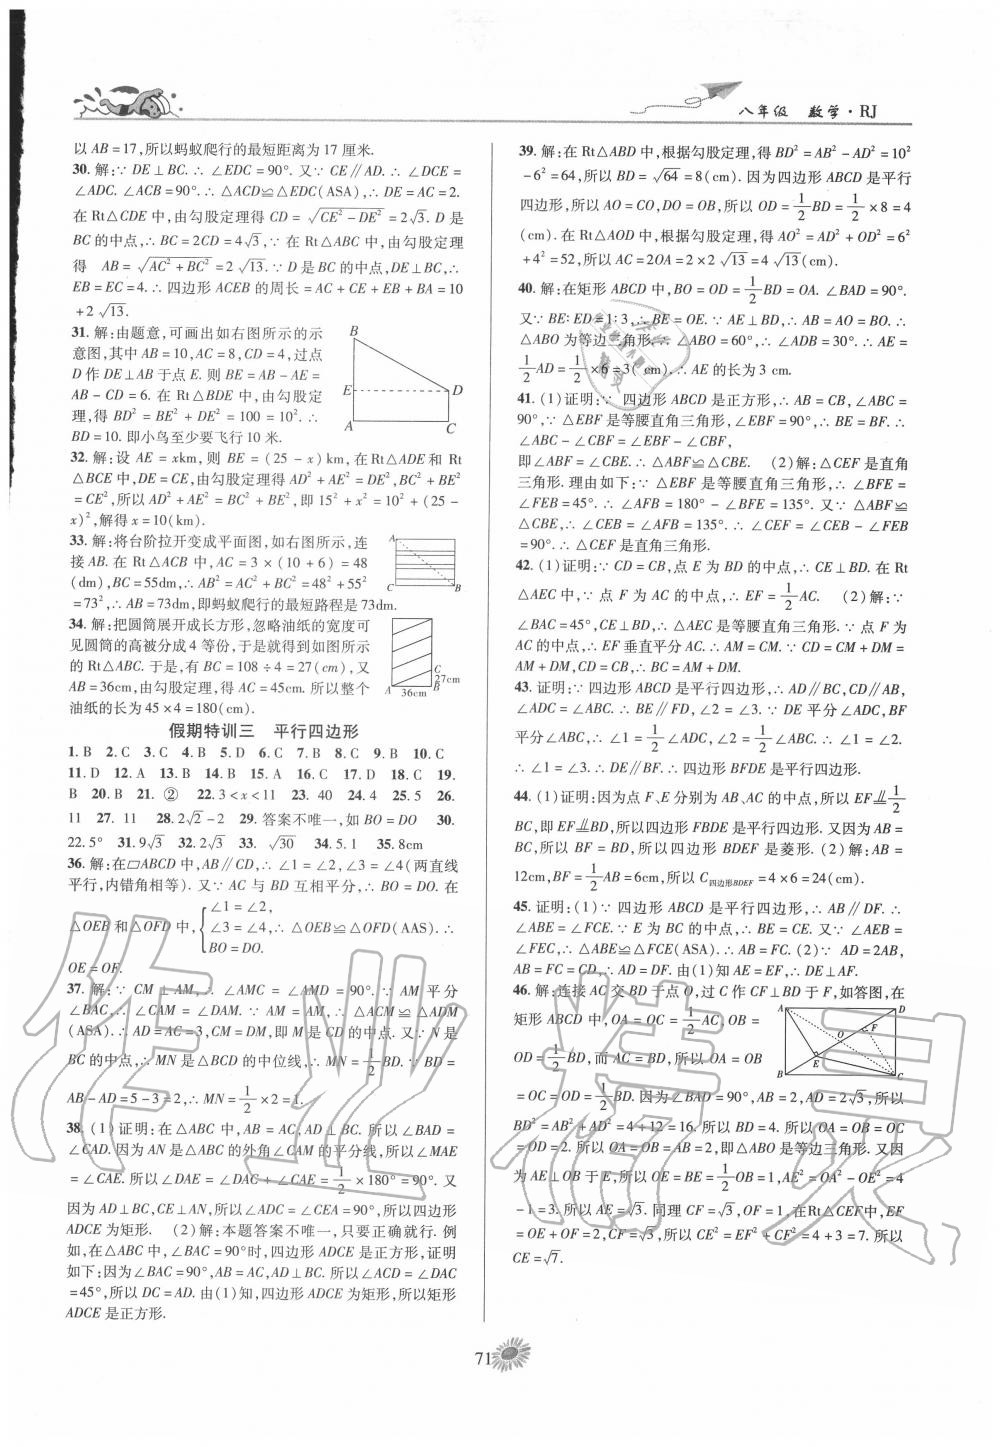 八年级 数学·RJ
以 AB=17,所以蚂蚁爬行的最短距离为 17 厘米.
30. 解:∵ DE⊥BC.∴ ∠EDC=90°. 又∵ CE∥AD.∴ ∠DCE=
∠ADC. ∠ACB=90°.∴ △ACD≌△EDC(ASA),∴ DE=AC=2.
在 Rt△CDE 中,由勾股定理得 CD=√(CE²-DE²)=2√3. D 是
BC的中点,∴ BC=2CD=4√3,∵ 在 Rt△ABC 中,由勾股定理
得 AB=√(AC²+BC²)=2√13.∵ D 是 BC的中点,DE⊥BC,∴
EB=EC=4.∴ 四边形 ACEB 的周长=AC+CE+EB+BA=10
+2√13.
31. 解:由题意,可画出如右图所示的示
意图,其中 AB=10,AC=8,CD=4,过点
D 作 DE⊥AB 于点 E. 则 BE=AB-AE=
AB-CD=6. 在 Rt△BDE 中,由勾股定
理,得 BD²=BE²+DE²=100=10².∴
BD=10. 即小鸟至少要飞行 10 米.
B
E
D
A
C
32. 解:设 AE=xkm,则 BE=(25-x)km,在Rt△ADE和 Rt
△BCE 中,DE=CE,由勾股定理得 AD²+AE²=DE²,BC²+BE²
=CE²,所以 AD²+AE²=BC²+BE²,即 15²+x²=10²+(25-
x)²,解得 x=10(km).
33. 解:将台阶拉开变成平面图,如右图所示,连
接 AB. 在 Rt△ACB 中,AC=3×(10+6)=48
(dm),BC=55dm,∴ AB²=AC²+BC²=48²+55²
=73²,∴ AB=73dm,即蚂蚁爬行的最短路程是73dm.
A
C
B
34. 解:把圆筒展开成长方形,忽略油纸的宽度可
见圆筒的高被分成 4 等份,于是就得到如图所示
的 Rt△ABC. 于是,有 BC=108÷4=27(cm),又
AB=36cm,由勾股定理,得 AC=45cm. 所以整个
油纸的长为 45×4=180(cm).
C
27cm
A 36cm B
假期特训三 平行四边形
1. B 2. C 3. C 4. B 5. D 6. C 7. D 8. C 9. B 10. C
11. D 12. A 13. B 14. B 15. A 16. C 17. D 18. C 19.
B 20. B 21. ② 22. 3<x<11 23. 40 24. 4 25. 5 26.
11 27. 11 28. 2√2-2 29. 答案不唯一,如 BO=DO 30.
22.5° 31. 9√3 32. 2√3 33. √30 34. 5.1 35. 8cm
36. 解:在▱ABCD 中,AB∥CD,∴ ∠1=∠2,∠3=∠4(两直线
平行,内错角相等). 又∵ AC 与 BD 互相平分,∴ BO=DO. 在
△OEB 和△OFD 中,{∠1=∠2, ∠3=∠4, BO=DO. ∴ △OEB≌△OFD(AAS).∴
OE=OF.
37. 解:∵ CM⊥AM,∴ ∠AMC=∠AMD=90°.∵ AM 平分
∠BAC,∴ ∠CAM=∠DAM.∵ AM=AM,∴ △ACM≌△ADM
(ASA).∴ AD=AC=3,CM=DM,即 M 是 CD 的中点. 又∵ N 是
BC 的中点,∴ MN 是△BCD 的中位线,∴ MN=1/2BD.∵ BD=
AB-AD=5-3=2,∴ MN=1/2×2=1.
38. (1)证明:在△ABC 中,AB=AC,AD⊥BC. 所以∠BAD=
∠CAD. 因为 AN 是△ABC 的外角∠CAM 的平分线,所以∠MAE
=∠CAE. 所以∠DAE=∠DAC+∠CAE=1/2×180°=90°. 又
因为 AD⊥BC,CE⊥AN,所以∠ADC=∠CEA=90°,所以四边形
ADCE 为矩形. (2)解:本题答案不唯一,只要正确就行. 例
如,在△ABC 中,∠BAC=90°时,四边形 ADCE 是正方形,证明
如下:因为∠BAC=90°,AB=AC,AD⊥BC. 所以∠ACD=∠DAC
=45°,所以 DC=AD. 由(1)知,四边形 ADCE 为矩形,所以矩形
ADCE 是正方形.
39. 解:在 Rt△ABD 中,根据勾股定理,得 BD²=AB²-AD²=10²
-6²=64,所以 BD=√64=8(cm). 因为四边形 ABCD 是平行
四边形,所以 AO=CO,DO=BO,所以 OD=1/2BD=1/2×8=4
(cm). 在 Rt△AOD 中,根据勾股定理,得 AO²=AD²+OD²=6²
+4²=52,所以 AC=2OA=2×2√13=4√13(cm).
40. 解:在矩形 ABCD 中,BO=OD=1/2BD=OA. ∠BAD=90°.
又∵ BE:ED=1:3,∴ BE=OE.∵ AE⊥BD,∴ AB=AO=BO.∴
△ABO 为等边三角形.∴ ∠ABO=60°,∴ ∠ADB=30°.∴ AE=
1/2AD=1/2×6=3(cm),∴ AE 的长为 3 cm.
41. (1)证明:∵ 四边形 ABCD 是正方形,∴ AB=CB,∠ABC=
90°,∵ △EBF 是等腰直角三角形,∠EBF=90°,∴ BE=BF.∴
∠ABC-∠CBF=∠EBF-∠CBF,
即∠ABF=∠CBE.∴ △ABF≌△CBE. (2)解:△CEF 是直角
三角形. 理由如下:∵ △EBF 是等腰直角三角形,∴ ∠BFE=
∠FEB=45°.∴ ∠AFB=180°-∠BFE=135°. 又∵ △ABF≌
△CBE,∴ ∠CEB=∠AFB=135°.∴ ∠CEF=∠CEB-∠FEB
=90°.∴ △CEF 是直角三角形.
42. (1)证明:∵ CD=CB,点 E 为 BD 的中点,∴ CE⊥BD. 在 Rt
△AEC 中,∵ 点 F 为 AC 的中点,∴ EF=1/2AC. (2)解:∵
∠BAC=45°,CE⊥BD,∴ △AEC 是等腰直角三角形.∵ 点 F 为
AC 的中点,∴ EF 垂直平分 AC.∴ AM=CM.∵ CD=CM+DM=
AM+DM,CD=CB,∴ BC=AM+DM.
43. 证明:∵ 四边形 ABCD 是平行四边形,∴ AD∥BC,CD∥AB,
∠ADC=∠ABC,∴ ∠3=∠FBC,∠2=∠3.∵ DE 平分∠ADC,BF
平分∠ABC,∴ ∠1=1/2∠ADC,∠2=1/2∠ABC,∴ ∠1=∠2.
∴ ∠1=∠3.∴ DE∥BF.∴ 四边形 BFDE 是平行四边形.
44. (1)证明:因为点 F、E 分别为 AB、AC 的中点,所以 EF⫽1/2
BC,即 EF⫽BD,所以四边形 FBDE 是平行四边形. 又因为 AB=
BC,所以 BF=BD,所以四边形 BDEF 是菱形. (2)解:AB=
12cm,BF=1/2AB=6cm,所以 C四边形BDEF=4×6=24(cm).
45. 证明:(1)∵ 四边形 ABCD 是平行四边形,∴ AB∥DF.∴
∠ABE=∠FCE.∵ E 为 BC 的中点,∴ BE=CE. 又∵ ∠AEB=
∠FEC,∴ △ABE≌△FCE(ASA).∴ AB=FC. (2)∵ AD=2AB,
AB=FC=CD,∴ AD=DF. 由(1)知 AE=EF,∴ DE⊥AF.
46. 解:连接 AC 交 BD 于点 O,过 C 作 CF⊥BD 于 F,如答图,在
矩形 ABCD 中,OA=OC=1/2AC,OB=
OD=1/2BD,而 AC=BD,所以 OA=OB
=OC=OD=1/2BD. 因为∠BAD=90°,AB=2,AD=2√3,所以
A
D
O
F
E
B
C
BD²=AB²+AD²=4+12=16. 所以 BD=4. 所以 OA=OB=OC
=OD=2. 所以 OA=OB=AB=2,即△ABO 是等边三角形. 又因
为 AE⊥OB 于 E,所以 OE=BE=1/2OB=1. 所以 AE²=OA²-OE²=4
-1=3. 所以 AE=√3. 同理 CF=√3,OF=1. 在Rt△CEF中,EF
=OE+OF=2,CF=√3,所以 CE²=EF²+CF²=4+3=7. 所以
CE=√7.
71
作业精灵